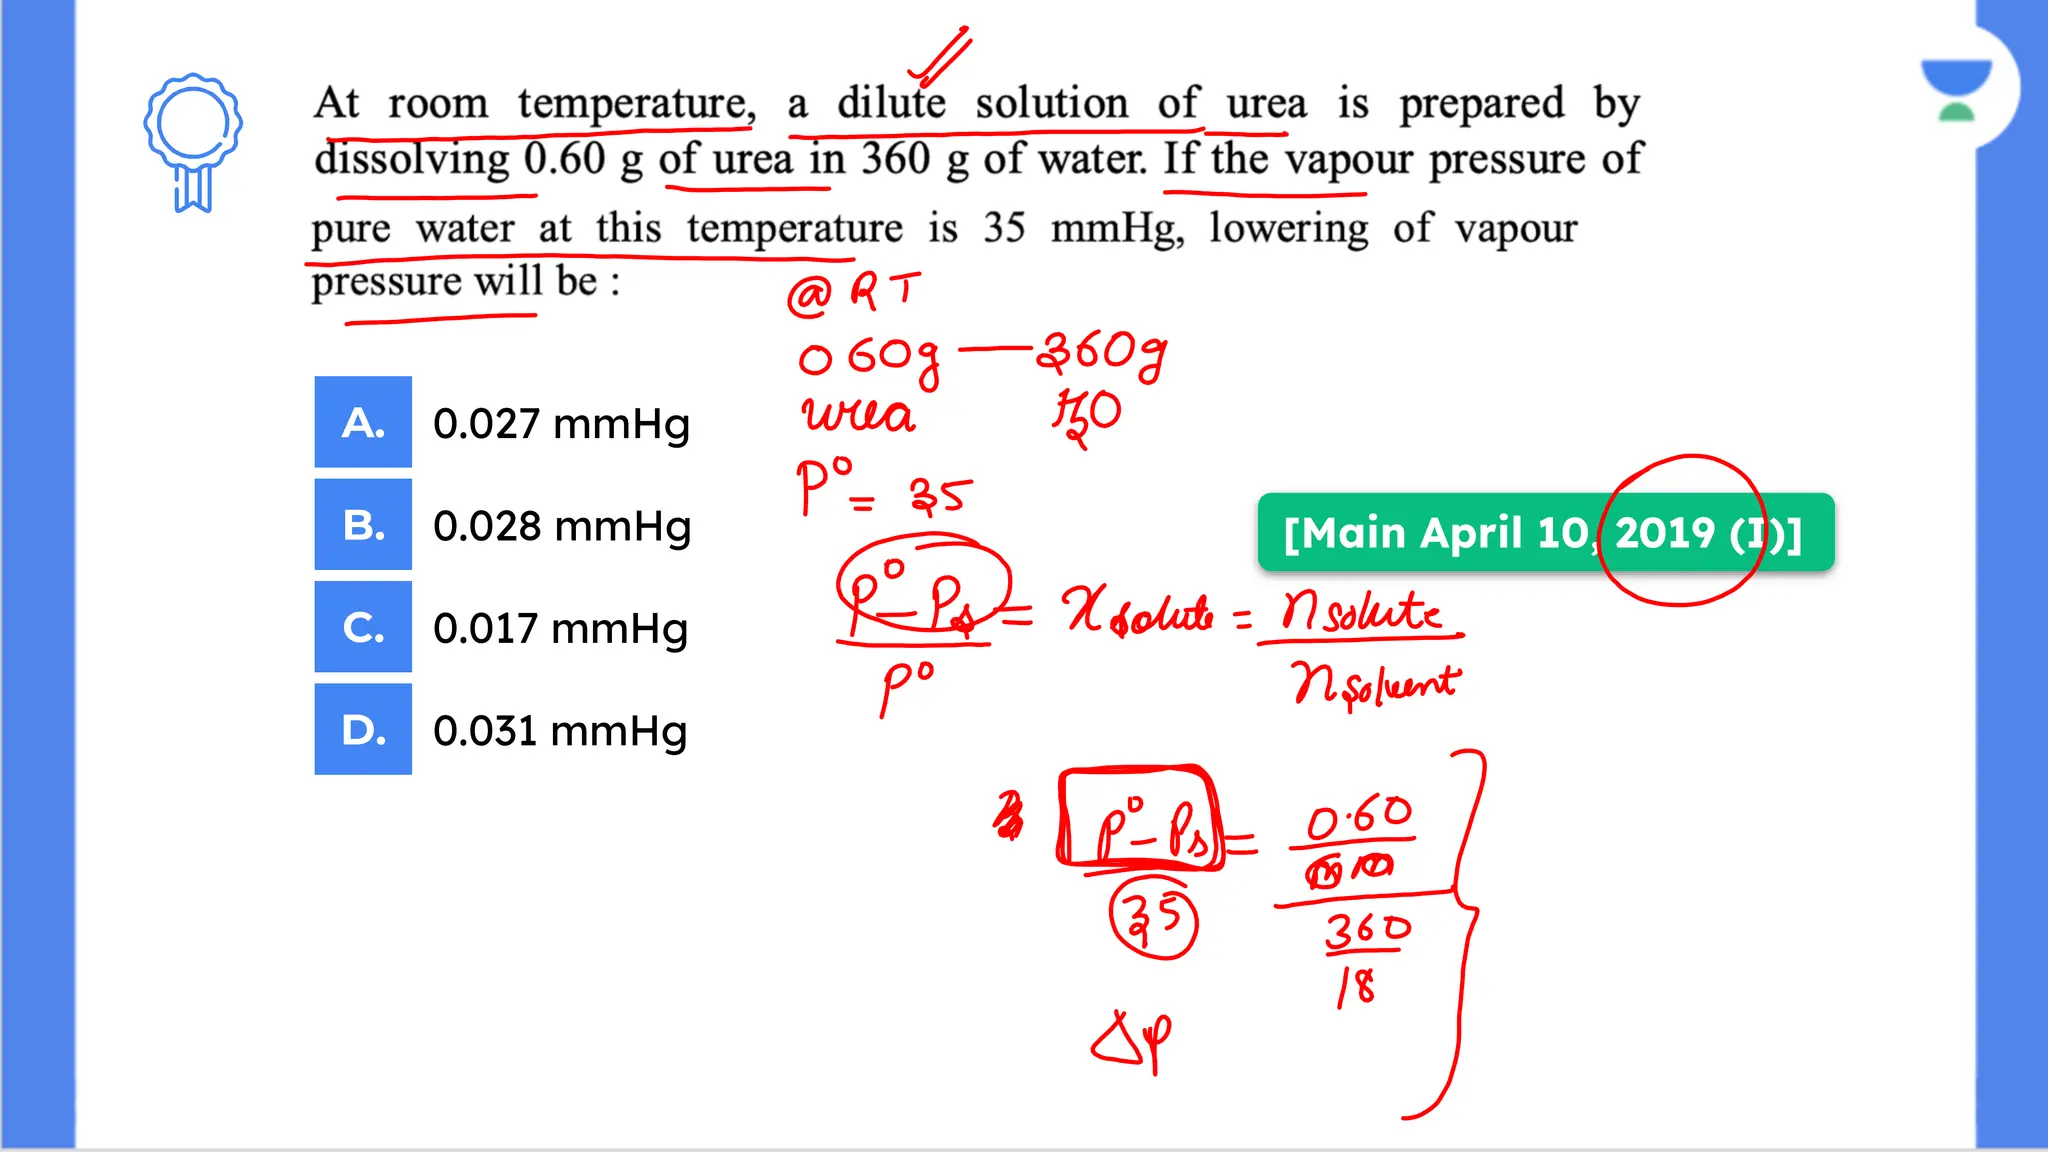 At room temperature, a dilute solution of urea is prepared by
dissolving 0.60 g of urea in 360 g of water. If the vapour pressure of
pure water at this temperature is 35 mmHg, lowering of vapour
pressure will be :
@ RT
0 60g — 360g
urea H₂O
A. 0.027 mmHg
P⁰ = 35
B. 0.028 mmHg
[Main April 10, 2019 (I)]
P⁰ - Pₛ = X solute = n solute
P⁰ n solvent
C. 0.017 mmHg
D. 0.031 mmHg
P⁰ - Pₛ = 0.60
35 360
18
Δp